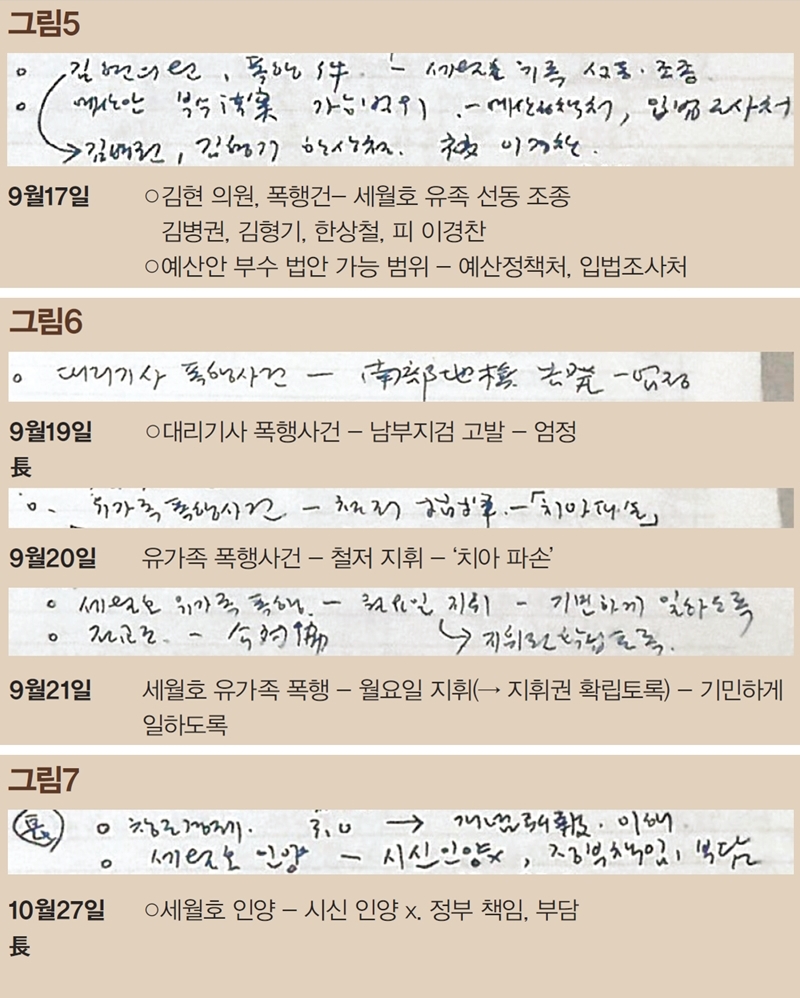 그림5
○ 김현의원, 폭행 件. - 세월호 유족 선동·조종
○ 예산안 부수法案 가능범위. - 예산정책처, 입법조사처
→ 김병권, 김형기 한상철. 被 이경찬.
9월17일 ○김현 의원, 폭행건– 세월호 유족 선동 조종
김병권, 김형기, 한상철, 피 이경찬
○예산안 부수 법안 가능 범위 – 예산정책처, 입법조사처
그림6
○ 대리기사 폭행사건 — 南部地檢 告發 - 엄정
9월19일 ○대리기사 폭행사건 – 남부지검 고발 – 엄정
長
○. 유가족 폭행사건. - 철저 指揮.-「치아파손」
9월20일 유가족 폭행사건 – 철저 지휘 – ‘치아 파손’
○ 세월호 유가족 폭행. - 월요일 지휘 - 기민하게 일하도록
○ 전교조. - → 지휘권 확립토록.
9월21일 세월호 유가족 폭행 – 월요일 지휘(→ 지휘권 확립토록) – 기민하게
일하도록
그림7
長 ○ 창조경제. 3.0 → 개념 이해
○ 세월호 인양 — 시신인양x, 정부책임, 부담
10월27일 ○세월호 인양 – 시신 인양 x. 정부 책임, 부담
長